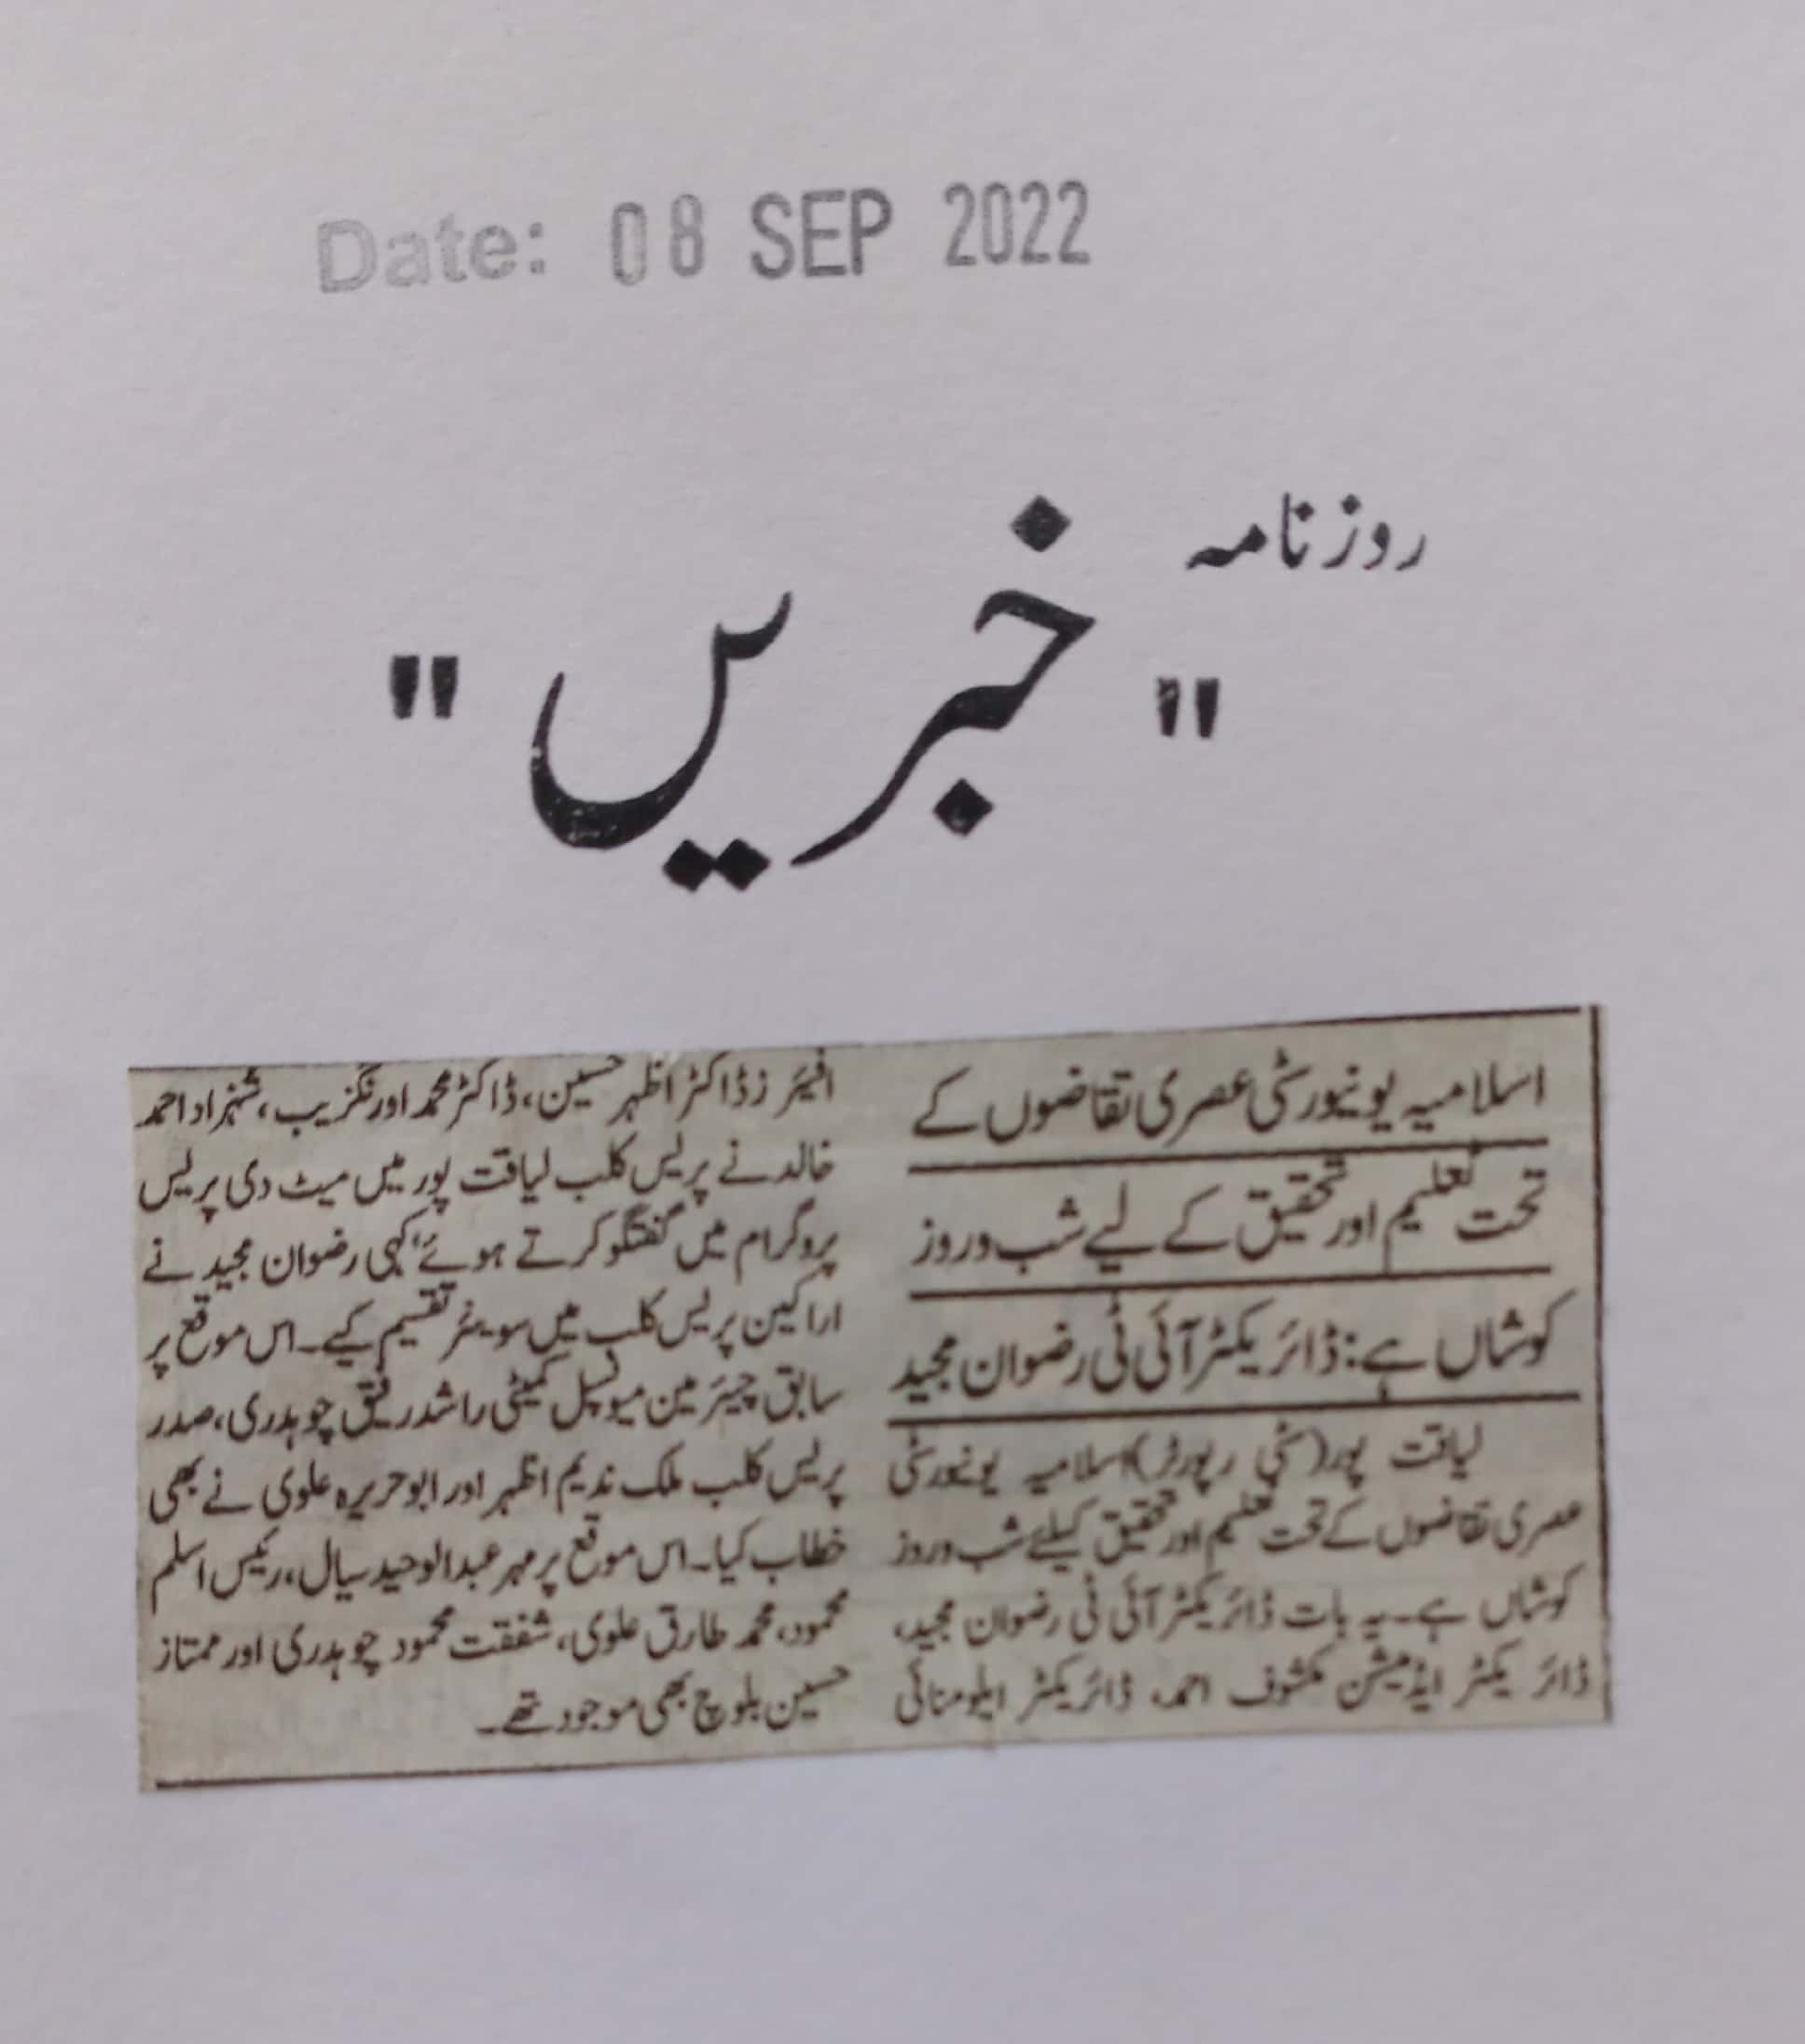 Date: 08 SEP 2022
روزنامہ
"خبریں"
اسلامیہ یونیورسٹی عصری تقاضوں کے
تحت تعلیم اور تحقیق کے لیے شب و روز
کوشاں ہے: ڈائریکٹر آئی ٹی رضوان مجید
لیاقت پور (سٹی رپورٹر) اسلامیہ یونیورسٹی
عصری تقاضوں کے تحت تعلیم اور تحقیق کیلئے شب و روز
کوشاں ہے۔ یہ بات ڈائریکٹر آئی ٹی رضوان مجید،
ڈائریکٹر ایڈمیشن مکشوف احمد، ڈائریکٹر ایلومنائی
افیئرز ڈاکٹر اظہر حسین، ڈاکٹر محمد اورنگزیب، شہزاد احمد
خالد نے پریس کلب لیاقت پور میں میٹ دی پریس
پروگرام میں گفتگو کرتے ہوئے کہی رضوان مجید نے
اراکین پریس کلب میں سوینئر تقسیم کیے۔ اس موقع پر
سابق چیئرمین میونسپل کمیٹی راشد رفیق چوہدری، صدر
پریس کلب ملک ندیم اظہر اور ابو حریرہ علوی نے بھی
خطاب کیا۔ اس موقع پر مہر عبدالوحید سیال، رئیس اسلم
محمود، محمد طارق علوی، شفقت محمود چوہدری اور ممتاز
حسین بلوچ بھی موجود تھے۔